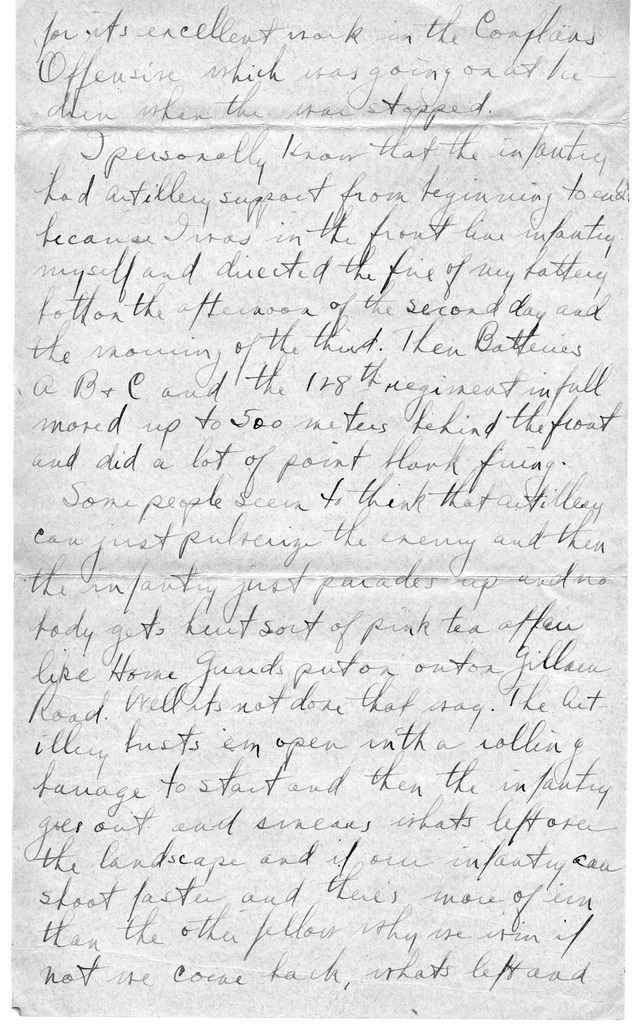 for its excellent work in the Conflans
Offensive which was going on at Ver-
dun when the war stopped.
I personally know that the infantry
had artillery support from beginning to end
because I was in the front line infantry
myself and directed the fire of my battery
both on the afternoon of the second day and
the morning of the third. Then Batteries
A B + C and the 128th regiment in full
moved up to 500 meters behind the front
and did a lot of point blank firing.
Some people seem to think that artillery
can just pulverize the enemy and then
the infantry just parades up and no
body gets hurt sort of pink tea affair
like Home Guards put on out on
Road. Well its not done that way. The Art-
illery busts em open with a rolling
barrage to start and then the infantry
goes out and smears whats left over
the landscape and if our infantry can
shoot faster and there's more of em
than the other fellow why we win if
not we come back, whats left and